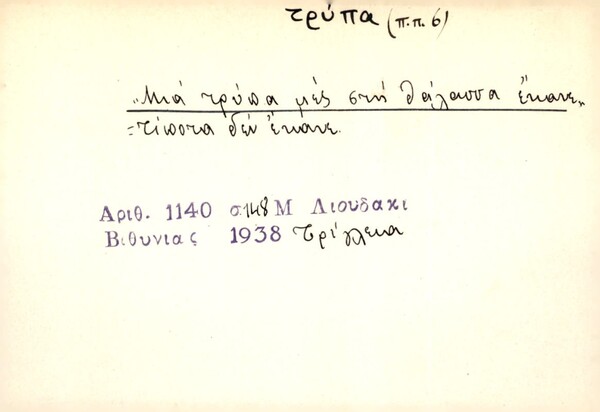 τρύπα (π.π. 6)
„Μιά τρύπα μές στή θάλασσα ἔκανε„
=τίποτα δέν ἔκανε.
Αριθ. 1140 σ.148 Μ Λιουδακι
Βιθυνιας 1938 Τρίγλεια